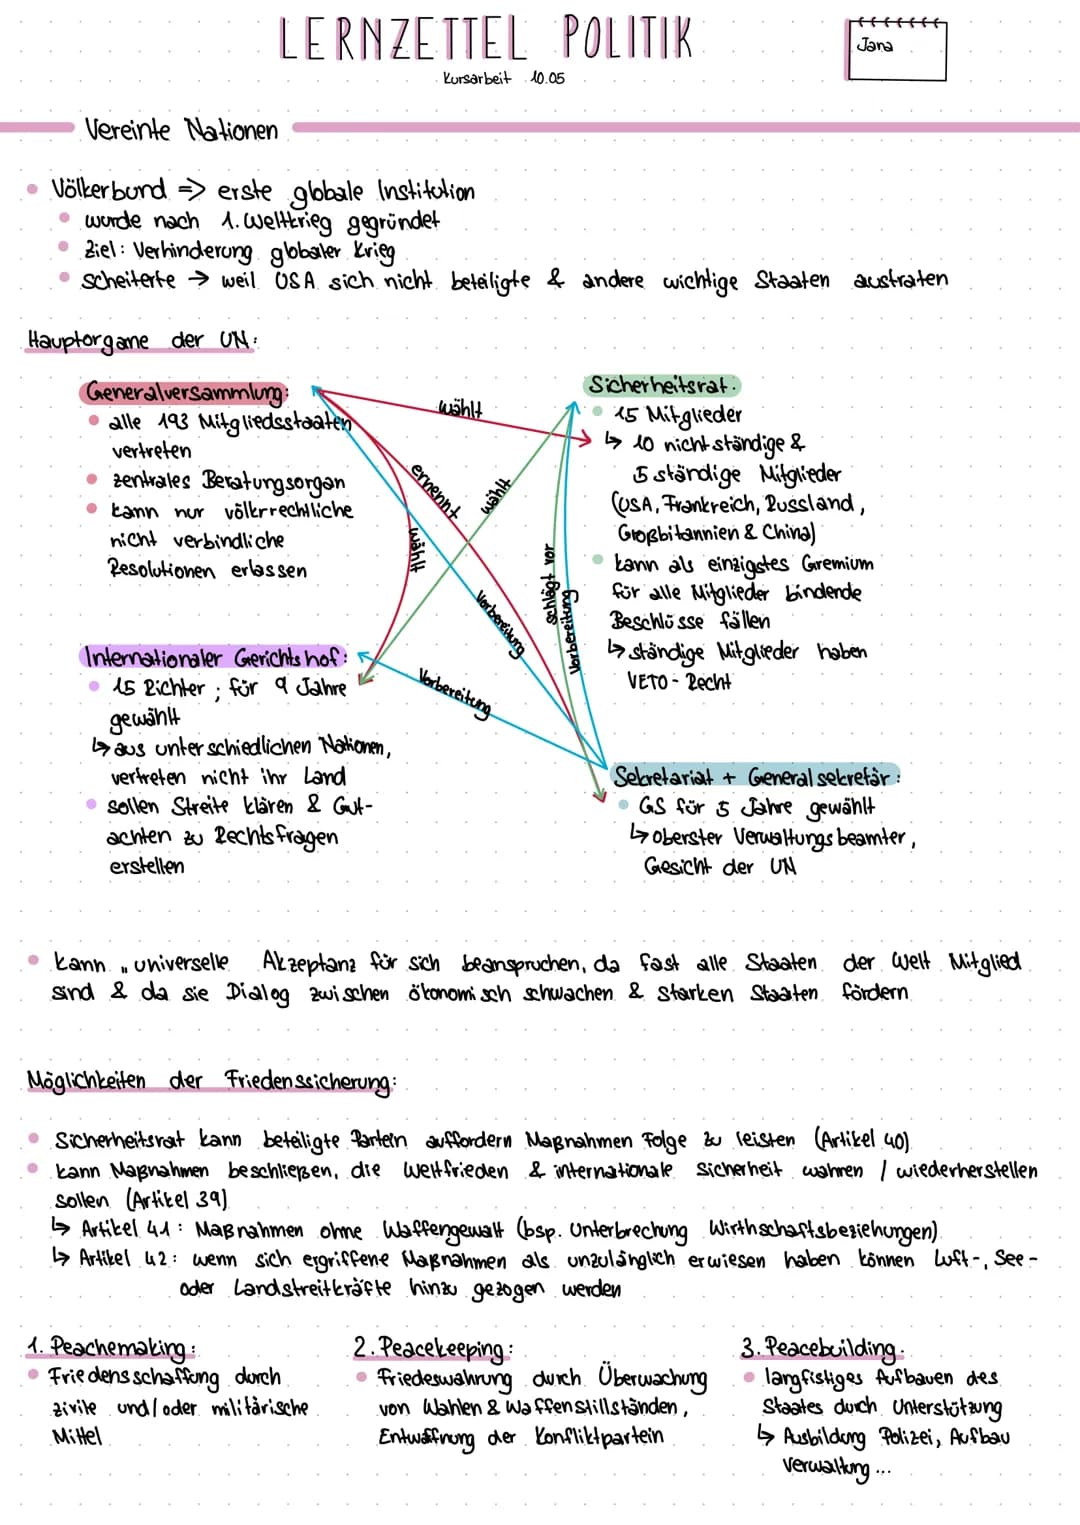 LERNZETTEL POLITIK
Kursarbeit 10.05
Jana
Vereinte Nationen
• Völkerbund => erste globale Institution
• wurde nach 1. Weltkrieg gegründet
• Ziel: Verhinderung globaler Krieg
• scheiterte → weil USA sich nicht beteiligte & andere wichtige Staaten austraten
Hauptorgane der UN:
Generalversammlung:
• alle 193 Mitgliedsstaaten
vertreten
• zentrales Beratungsorgan
• kann nur völkrrechtliche
nicht verbindliche
Resolutionen erlassen
wählt
ernennt
wählt
wählt
Vorbereitung
schlägt vor
Vorbereitung
Vorbereitung
Sicherheitsrat:
• 15 Mitglieder
↳ 10 nicht ständige &
5 ständige Mitglieder
(USA, Frankreich, Russland,
Großbitannien & China)
• kann als einzigstes Gremium
für alle Mitglieder bindende
Beschlüsse fällen
↳ ständige Mitglieder haben
VETO-Recht
Internationaler Gerichtshof:
• 15 Richter; für 9 Jahre
gewählt
↳ aus unterschiedlichen Nationen,
vertreten nicht ihr Land
• sollen Streite klären & Gut-
achten zu Rechtsfragen
erstellen
Sekretariat + Generalsekretär:
• GS für 5 Jahre gewählt
↳ oberster Verwaltungsbeamter,
Gesicht der UN
• kann „universelle Akzeptanz für sich beanspruchen, da fast alle Staaten der Welt Mitglied
sind & da sie Dialog zwischen ökonomisch schwachen & starken Staaten fördern
Möglichkeiten der Friedenssicherung:
• Sicherheitsrat kann beteiligte Partein auffordern Maßnahmen Folge zu leisten (Artikel 40)
• kann Maßnahmen beschließen, die Weltfrieden & internationale Sicherheit wahren / wiederherstellen
sollen (Artikel 39)
↳ Artikel 41: Maßnahmen ohne Waffengewalt (bsp. Unterbrechung Wirthschaftsbeziehungen)
↳ Artikel 42: wenn sich ergriffene Maßnahmen als unzulänglich erwiesen haben können Luft-, See-
oder Landstreitkräfte hinzu gezogen werden
1. Peachemaking:
• Friedensschaffung durch
zivile und/oder militärische
Mittel
2. Peacekeeping:
• Friedeswahrung durch Überwachung
von Wahlen & Waffenstillständen,
Entwaffnung der Konfliktpartein
3. Peacebuilding:
• langfistiges Aufbauen des
Staates durch Unterstützung
↳ Ausbildung Polizei, Aufbau
Verwaltung...